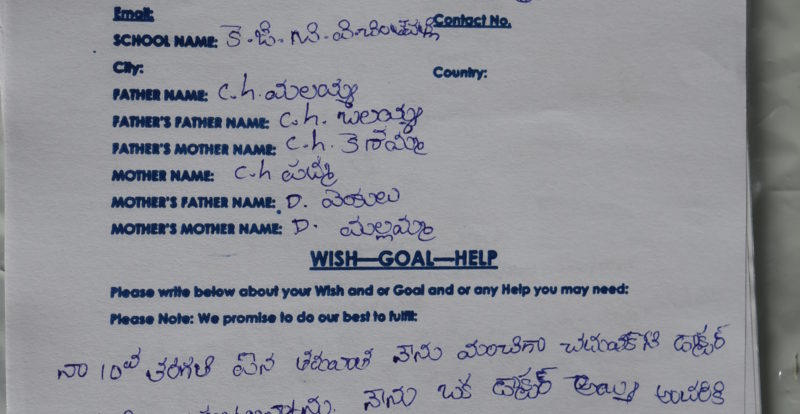 Email: Contact No.
SCHOOL NAME: కె.జి.బి.వి
City: Country:
FATHER NAME: C.h. మలయ్య
FATHER'S FATHER NAME: C.h. బలయ్య
FATHER'S MOTHER NAME: C.h. కెశమ్మ
MOTHER NAME: C.h పద్మ
MOTHER'S FATHER NAME: D. వెంకులు
MOTHER'S MOTHER NAME: D. మల్లమ్మ
WISH—GOAL—HELP
Please write below about your Wish and or Goal and or any Help you may need:
Please Note: We promise to do our best to fulfill:
నా 10వ తరగతి ఐన తరువాత నేను మంచిగా చదువుకొని డాక్టర్
నేను ఒక డాక్టర్ అయ్యి అందరికి